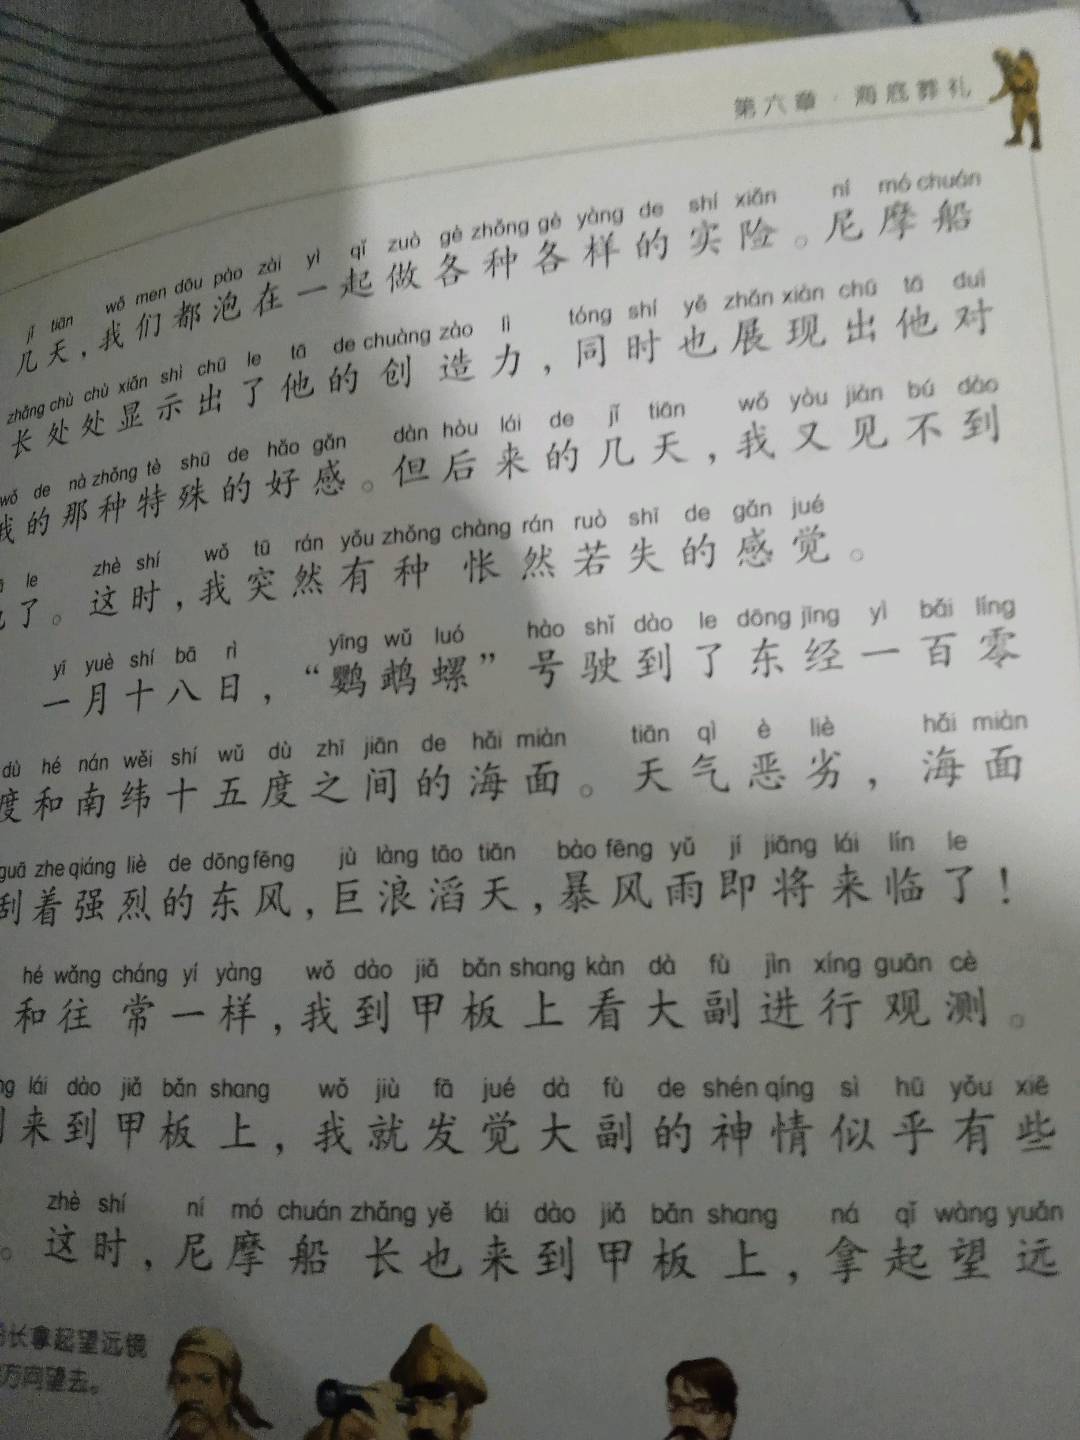 第六章·海底葬礼
jǐ tiān wǒ men dōu pào zài yì qǐ zuò gè zhǒng gè yàng de shí xiǎn ní mó chuán
几天，我们都泡在一起做各种各样的实险。尼摩船
zhǎng chù chù xiǎn shì chū le tā de chuàng zào lì tóng shí yě zhǎn xiàn chū tā duì
长处处显示出了他的创造力，同时也展现出他对
wǒ de nà zhǒng tè shū de hǎo gǎn dàn hòu lái de jǐ tiān wǒ yòu jiàn bú dào
我的那种特殊的好感。但后来的几天，我又见不到
le zhè shí wǒ tū rán yǒu zhǒng chàng rán ruò shī de gǎn jué
了。这时，我突然有种怅然若失的感觉。
yī yuè shí bā rì yīng wǔ luó hào shǐ dào le dōng jīng yì bǎi líng
一月十八日，“鹦鹉螺”号驶到了东经一百零
dù hé nán wěi shí wǔ dù zhī jiān de hǎi miàn tiān qì è liè hǎi miàn
度和南纬十五度之间的海面。天气恶劣，海面
guā zhe qiáng liè de dōng fēng jù làng tāo tiān bào fēng yǔ jí jiāng lái lín le
刮着强烈的东风，巨浪滔天，暴风雨即将来临了！
hé wǎng cháng yí yàng wǒ dào jiǎ bǎn shang kàn dà fù jìn xíng guān cè
和往常一样，我到甲板上看大副进行观测。
lái dào jiǎ bǎn shang wǒ jiù fā jué dà fù de shén qíng sì hū yǒu xiē
来到甲板上，我就发觉大副的神情似乎有些
zhè shí ní mó chuán zhǎng yě lái dào jiǎ bǎn shang ná qǐ wàng yuǎn
。这时，尼摩船长也来到甲板上，拿起望远
长拿起望远镜
方向望去。